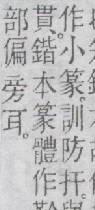 作小篆訓防扞
貫。鍇本篆體作
部偏旁耳。